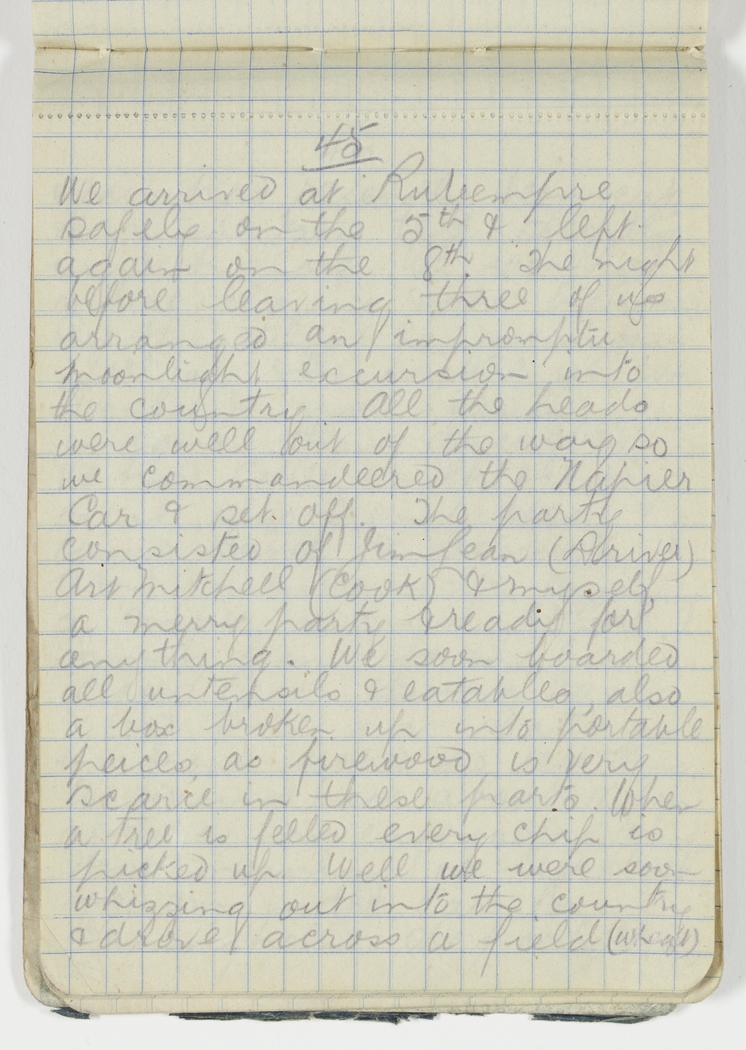 45
We arrived at Rubempre
safely on the 5th & left
again on the 8th The night
before leaving three of us
arranged an impromptu
moonlight excursion into
the country All the heads
were well out of the way so
we commandeered the Napier
Car & set off. The party
consisted of Jim Jean (Driver)
Art Mitchell (Cook) & myself
a merry party & ready for
anything. We soon boarded
all untensils & eatables, also
a box broken up into portable
peices, as firewood is very
scarce in these parts. When
a tree is felled every chip is
picked up Well we were soon
whizzing out into the country
& drove across a field (wheat)